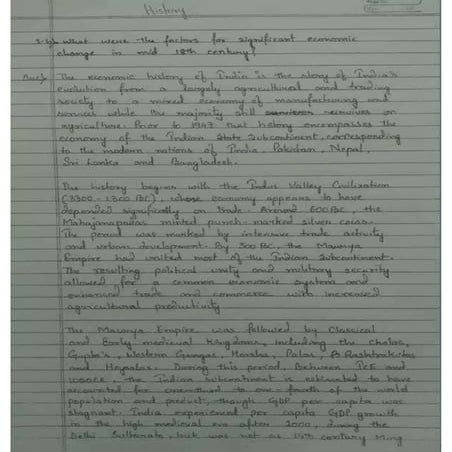 History
What were the factors for significant economic
change in mid 18th century?
The economic history of India is the story of India's
evolution from a largely agricultural and trading
society to a mixed economy of manufacturing and
services while the majority still survives on
agriculture. Prior to 1947 that history encompasses the
economy of the Indian State Subcontinent, corresponding
to the modern nations of India, Pakistan, Nepal,
Sri Lanka and Bangladesh.
The history begins with the Indus Valley Civilization
(3300-1300 BC), whose economy appears to have
depended significantly on trade. Around 600 BC, the
Mahajanapadas minted punch-marked silver coins.
The period was marked by intensive trade activity
and urban development. By 300 BC, the Maurya
Empire had united most of the Indian Subcontinent.
The resulting political unity and military security
allowed for a common economic system and
enhanced trade and commerce with increased
agricultural productivity
The Maurya Empire was followed by Classical
and Early medieval kingdoms, including the Cholas,
Gupta's, Western Gangas, Harsha, Palas, Rashtrakutas
and Hoysalas. During this period, Between 1CE and
1000CE, the Indian Subcontinent is estimated to have
accounted for one fourth of the world
population and product, though GDP per capita was
stagnant. India experienced per capita GDP growth
in the high medieval era after 1000, during the
Delhi Sultanate, but was not as 15th century Ming